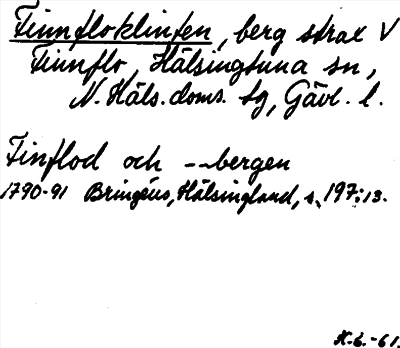 Finnfloklinten, berg strax V
Finnflo, Hälsingtuna sn,
N. Häls. doms. tg, Gävl. l.
Finflod och --bergen
1790-91 Bringéus, Hälsingland, s. 197:13.
H.L.-61.